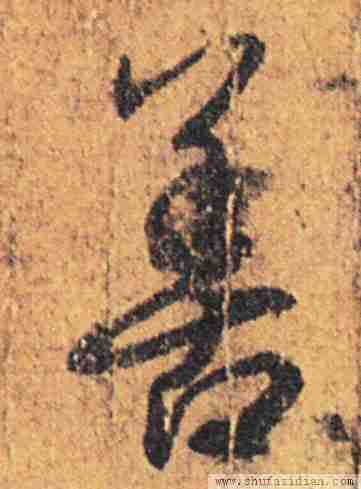 善
www.shufazidian.com